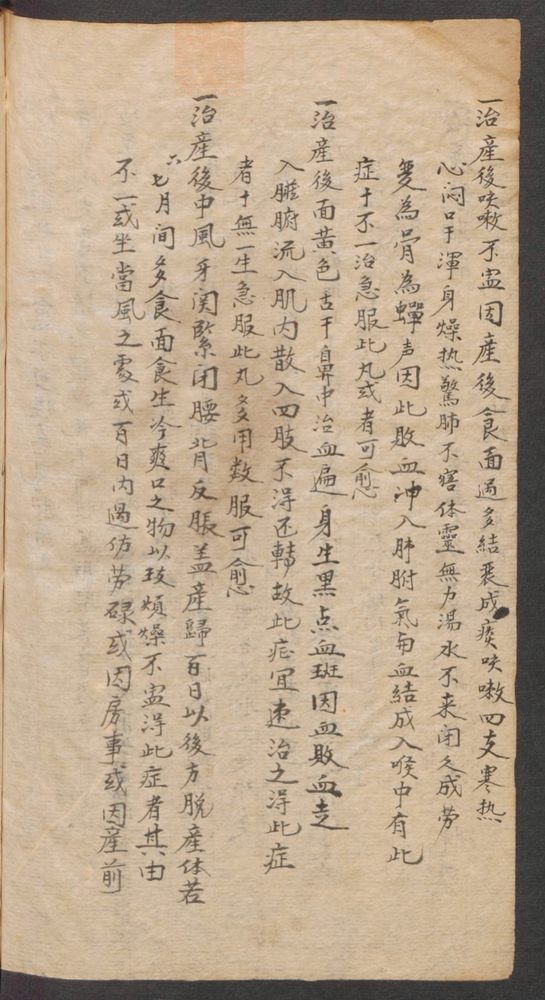 一治産後咳嗽不寍因産後食面過多結裹成痰咳嗽四支寒热
心闷口干渾身燥热驚肺不寍体靈無力湯水不来闭久成劳
变為骨為蟬声因此敗血冲入肺胕氣與血結成入喉中有此
症十不一治急服此丸或者可愈
一治産後面黄色舌干鼻中治血遍身生黑点血斑因血敗血走
入臟腑流入肌肉散入四肢不淂还轉故此症宜速治之淂此症
者十無一生急服此丸多用数服可愈
一治産後中風牙関緊闭腰背反脹盖産歸百日以後方脱産体若
六七月間多食面食生冷爽口之物以致煩燥不寍淂此症者其由
不一或坐當風之處或百日内過仿劳碌或因房事或因産前